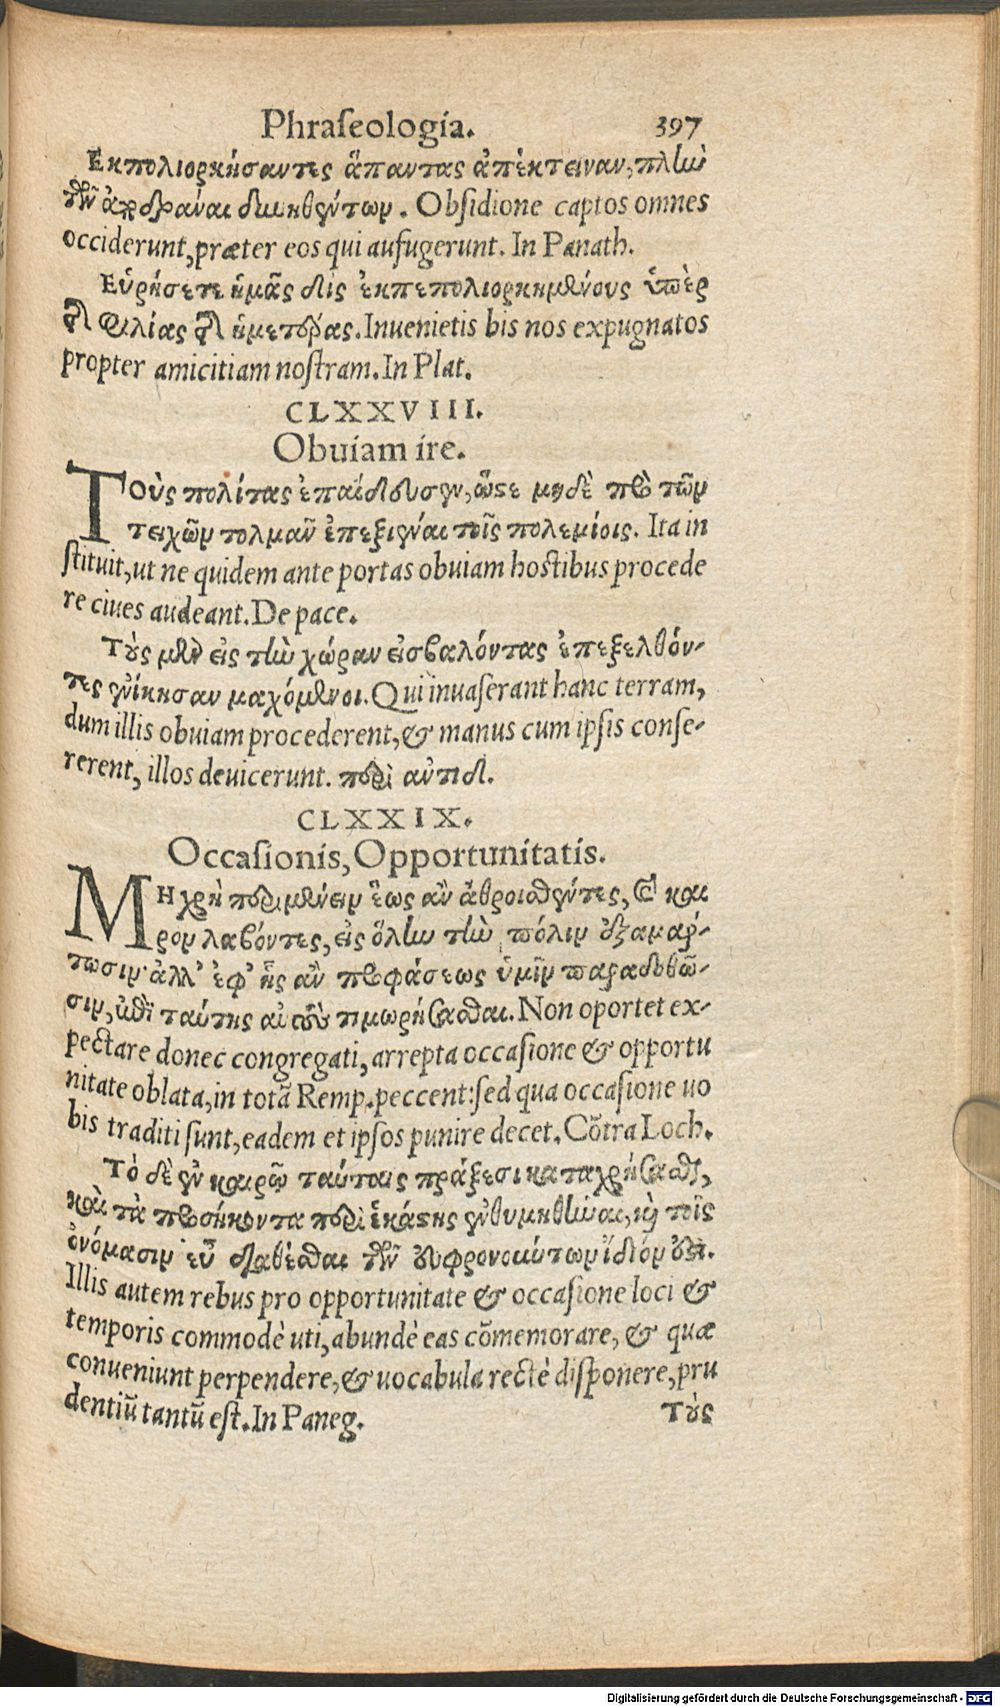 Phraseologia. 397
Εκπολιορκήσαντες ἅπαντας ἀπέκτειναν, πλὴν
τῶν ἀποδρᾶναι δυνηθέντων. Obsidione captos omnes
occiderunt, præter eos qui aufugerunt. In Panath.
Εὑρήσετε ἡμᾶς δὶς ἐκπεπολιορκημένους ὑπὲρ
τῆς φιλίας τῆς ἡμετέρας. Inuenietis bis nos expugnatos
propter amicitiam nostram. In Plat.
CLXXVIII.
Obuiam ire.
Τοὺς πολίτας ἐπαίδευσεν, ὥστε μηδὲ πρὸ τῶν
τειχῶν τολμᾶν ἐπεξιέναι τοῖς πολεμίοις. Ita in
stituit, ut ne quidem ante portas obuiam hostibus procede
re ciues audeant. De pace.
Τοὺς μὲν εἰς τὴν χώραν εἰσβαλόντας ἐπεξελθόν-
τες ἐνίκησαν μαχόμενοι. Qui inuaserant hanc terram,
dum illis obuiam procederent, & manus cum ipsis conse-
rerent, illos deuicerunt. περὶ αὐτιδ.
CLXXIX.
Occasionis, Opportunitatis.
Μὴ χρὴ περιμένειν ἕως ἂν ἀθροισθέντες, καὶ και
ρον λαβόντες, εἰς ὅλην τὴν πόλιν ἐξαμάρ-
τωσιν· ἀλλ' ἐφ' ἧς ἂν προφάσεως ὑμῖν παραδοθῶ-
σιν, ἐπὶ ταύτης αὐτοὺς τιμωρήσασθαι. Non oportet ex-
pectare donec congregati, arrepta occasione & opportu
nitate oblata, in totã Remp. peccent: sed qua occasione uo
bis traditi sunt, eadem et ipsos punire decet. Cõtra Loch.
Τὸ δὲ ἐν καιρῷ ταύταις πράξεσι καταχρήσασθαι,
καὶ τὰ προσήκοντα περὶ ἑκάστης ἐνθυμηθῆναι, καὶ τοῖς
ὀνόμασιν εὖ διαθέσθαι τῶν εὐφρονούντων ἴδιόν ἐστι.
Illis autem rebus pro opportunitate & occasione loci &
temporis commodè uti, abundè eas cõmemorare, & quæ
conueniunt perpendere, & uocabula rectè disponere, pru
dentiũ tantũ est. In Paneg.
Τοὺς
Digitalisierung gefördert durch die Deutsche Forschungsgemeinschaft - DFG